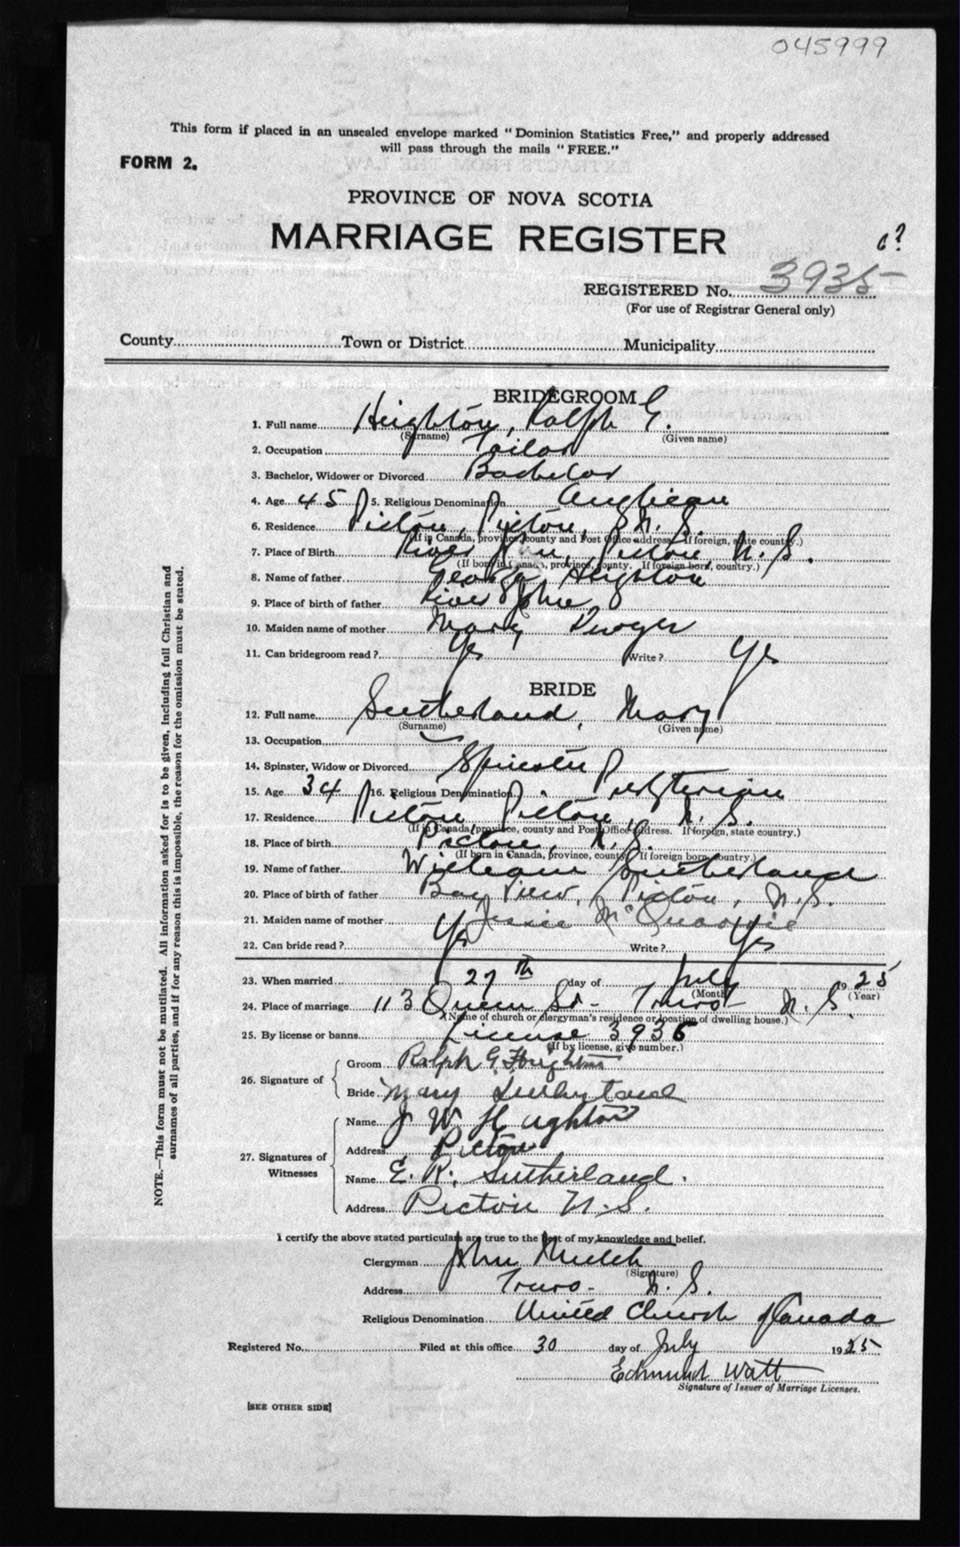 045999
This form if placed in an unsealed envelope marked "Dominion Statistics Free," and properly addressed
will pass through the mails "FREE."
FORM 2.
PROVINCE OF NOVA SCOTIA
MARRIAGE REGISTER
c?
REGISTERED No. 3935
(For use of Registrar General only)
County Town or District Municipality
BRIDEGROOM
1. Full name Heighton, Ralph G.
(Surname) (Given name)
2. Occupation Tailor
3. Bachelor, Widower or Divorced Bachelor
4. Age 45 5. Religious Denomination Anglican
6. Residence Pictou, Pictou, N.S.
(If in Canada, province, county and Post Office address. If foreign, state country.)
7. Place of Birth River John, Pictou N.S.
(If born in Canada, province, county. If foreign born, country.)
8. Name of father George Heighton
9. Place of birth of father River John
10. Maiden name of mother Mary Dwyer
11. Can bridegroom read? Yes Write? Yes
BRIDE
12. Full name Sutherland, Mary
(Surname) (Given name)
13. Occupation —
14. Spinster, Widow or Divorced Spinster
15. Age 34 16. Religious Denomination Presbyterian
17. Residence Pictou Pictou, N.S.
(If in Canada, province, county and Post Office address. If foreign, state country.)
18. Place of birth Pictou, N.S.
(If born in Canada, province, county. If foreign born, country.)
19. Name of father William Sutherland
20. Place of birth of father Bay View, Pictou, N.S.
21. Maiden name of mother Jessie McQuarrie
22. Can bride read? Yes Write? Yes
23. When married 27th day of July 1925
(Month) (Year)
24. Place of marriage 113 Queen St- Truro N.S.
(Name of church or clergyman's residence or location of dwelling house.)
25. By license or banns License 3936
(If by license, give number.)
26. Signature of
Groom Ralph G. Heighton
Bride Mary Sutherland
27. Signatures of Witnesses
Name J W Heighton
Address Pictou
Name E. R. Sutherland.
Address Pictou N.S.
I certify the above stated particulars are true to the best of my knowledge and belief.
Clergyman John
(Signature)
Address Truro- N.S.
Religious Denomination United Church of Canada
Registered No. Filed at this office 30 day of July 1925
Edmund Watt
Signature of Issuer of Marriage Licenses.
[SEE OTHER SIDE]
NOTE.—This form must not be mutilated. All information asked for is to be given, including full Christian and
surnames of all parties, and if for any reason this is impossible, the reason for the omission must be stated.